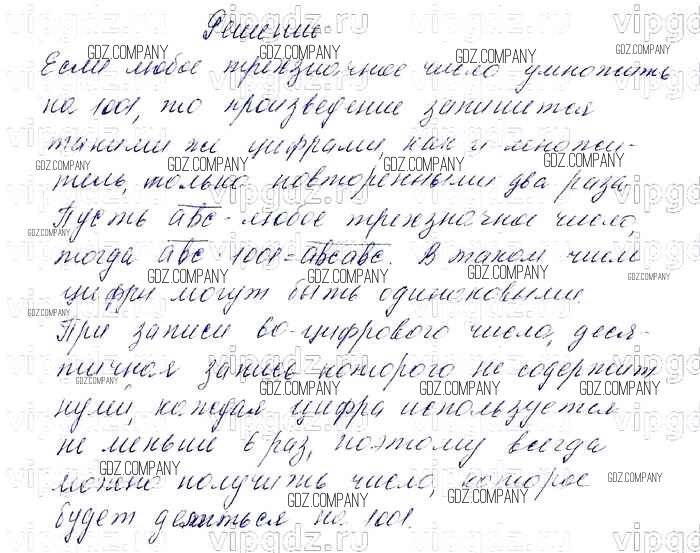 Решение
Если любое трехзначное число умножить
на 1001, то произведение запишется
такими же цифрами, как и множи-
тель, только повторенными два раза.
Пусть abc - любое трехзначное число,
тогда abc · 1001 = abcabc. В таком числе
цифры могут быть одинаковыми.
При записи 60-цифрового числа, деся-
тичная запись которого не содержит
нулей, каждая цифра используется
не меньше 6 раз, поэтому всегда
можно получить число, которое
будет делиться на 1001.